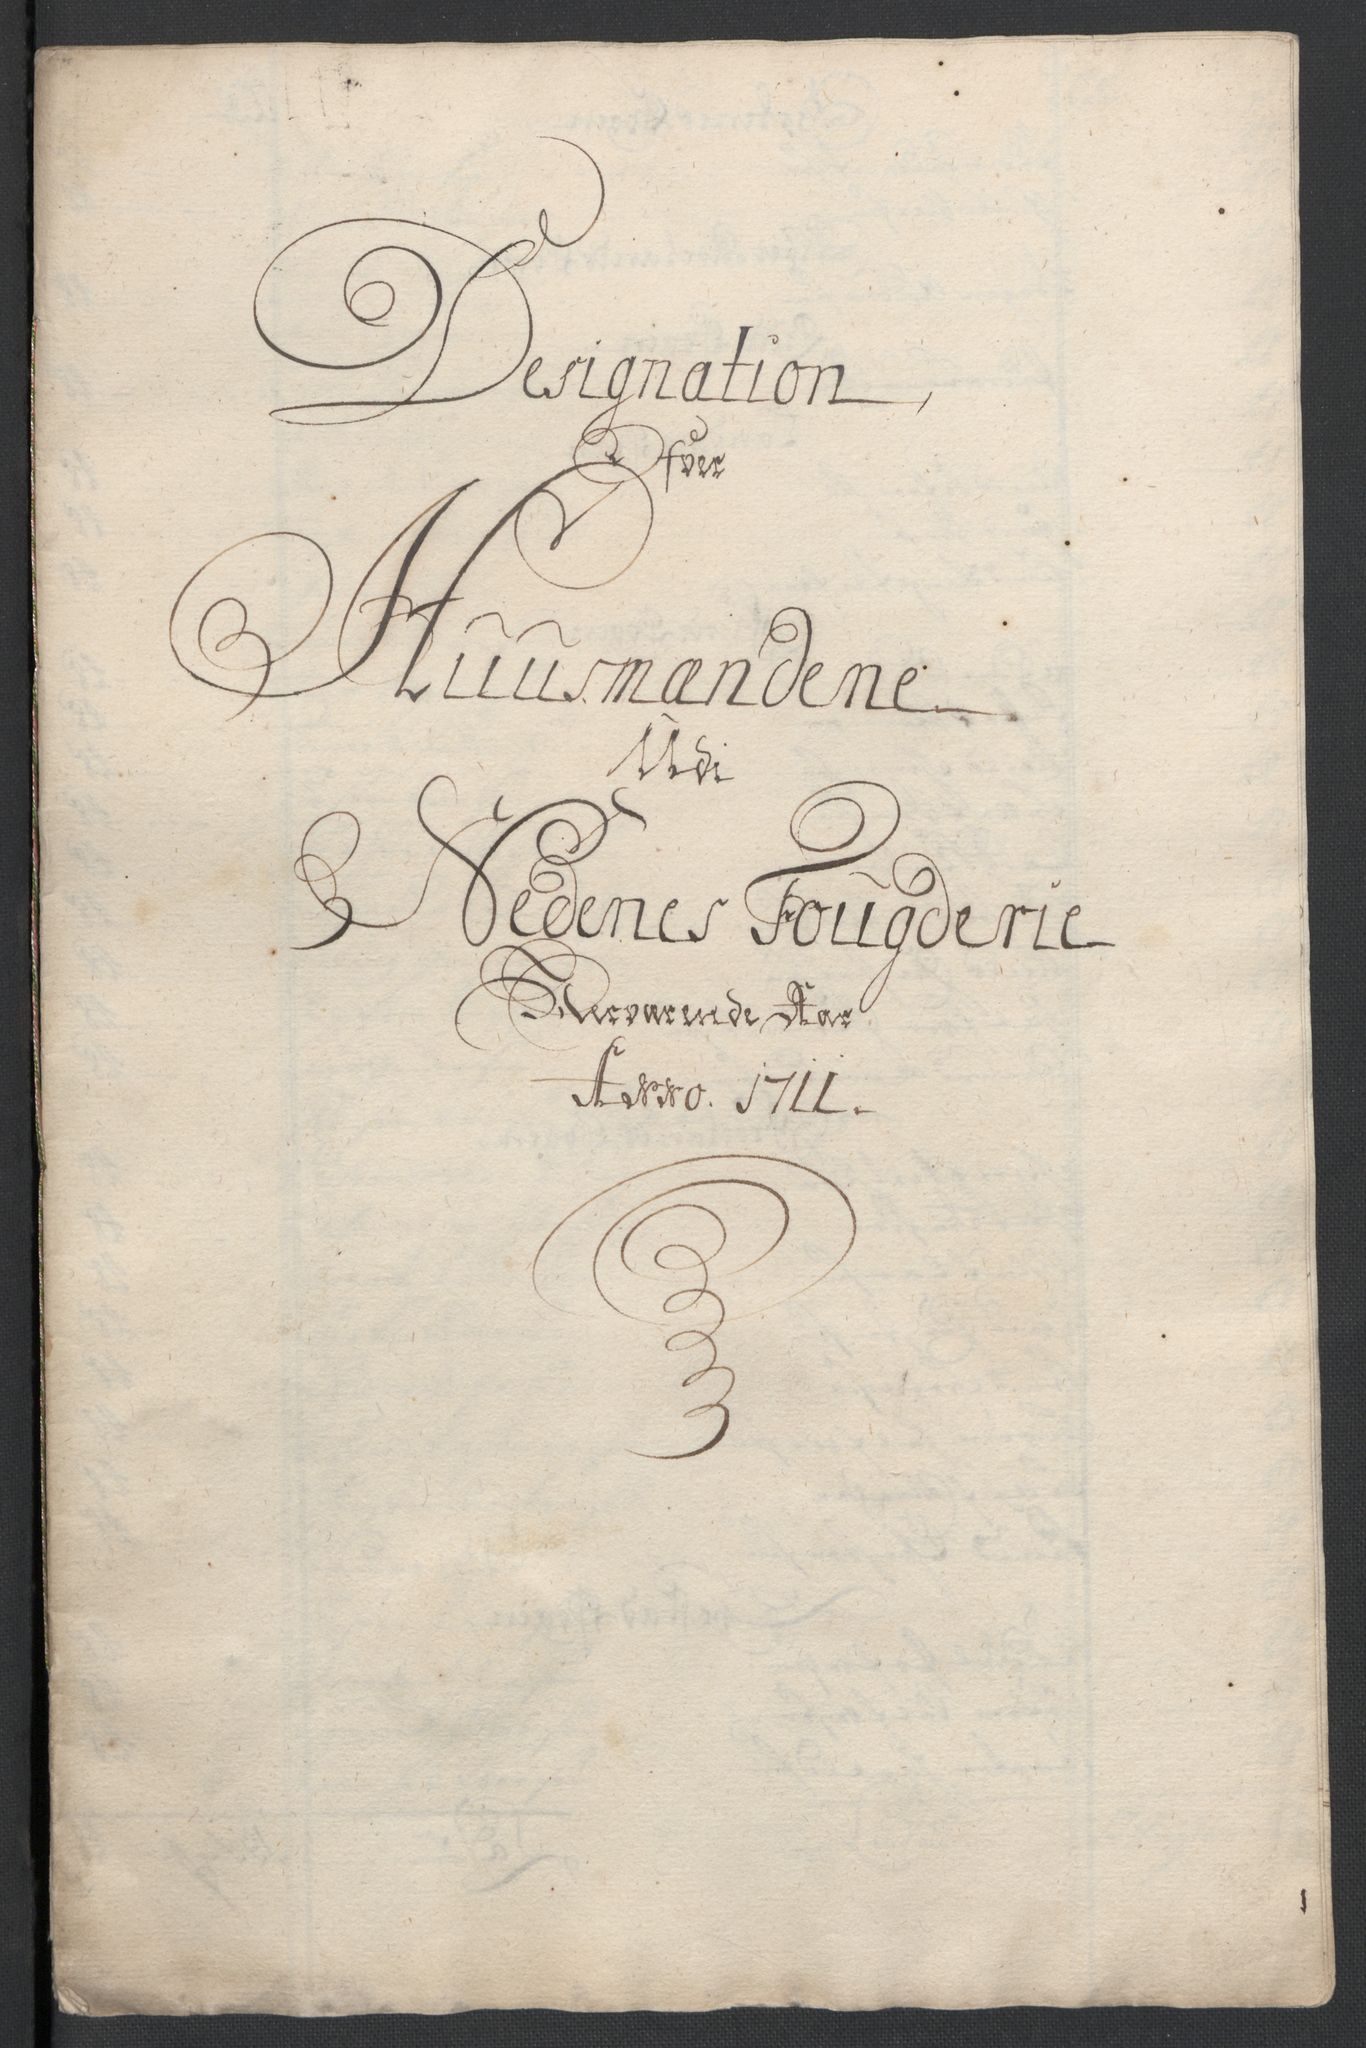 Designation,
Ofver
Huusmændene
Udi
Nedenes Fougderie
Nerværende Aar
Anno. 1711.